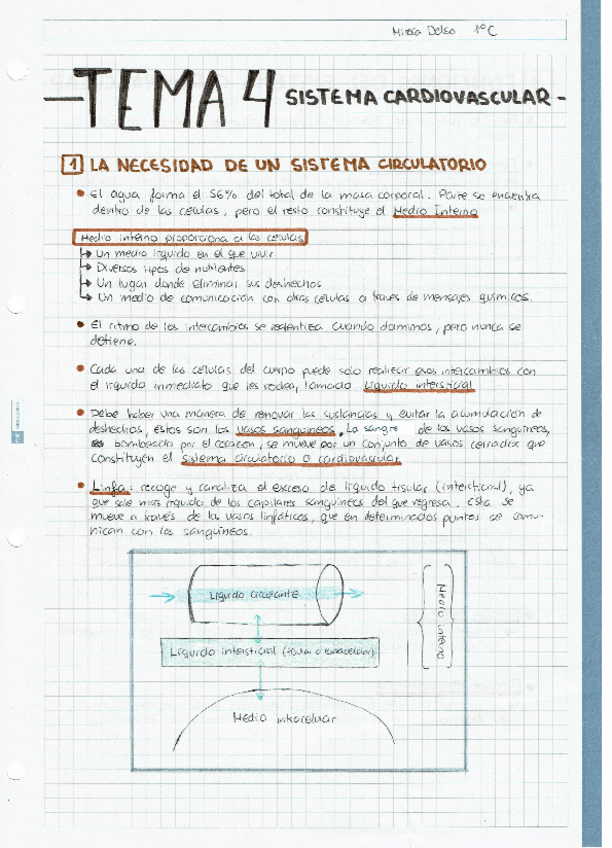 Mireia Delso 1ºC
— TEMA 4 SISTEMA CARDIOVASCULAR -
1 LA NECESIDAD DE UN SISTEMA CIRCULATORIO
• El agua forma el 56% del total de la masa corporal. Parte se encuentra
dentro de las células, pero el resto constituye el Medio Interno
Medio interno proporciona a las células
↳ Un medio líquido en el que vivir
↳ Diversos tipos de nutrientes
↳ Un lugar donde eliminar sus deshechos
↳ Un medio de comunicación con otras células a través de mensajes químicos.
• El ritmo de los intercambios se realentiza cuando dormimos, pero nunca se
detiene.
• Cada una de las células del cuerpo puede solo realizar esos intercambios con
el líquido inmediato que les rodea, llamado Líquido intersticial
• Debe haber una manera de renovar las sustancias y evitar la acumulación de
deshechos, éstos son los vasos sanguíneos. La sangre de los vasos sanguíneos,
bombeado por el corazón, se mueve por un conjunto de vasos cerrados que
constituyen el sistema circulatorio o cardiovascular
• Linfa: recoge y canaliza el exceso de líquido tisular (intersticial), ya
que sale más líquido de los capilares sanguíneos del que regresa. Esta se
mueve a través de los vasos linfáticos, que en determinados puntos se comu-
nican con los sanguíneos.
Líquido circulante
Líquido intersticial (tisular o extracelular)
Medio intracelular
Medio interno